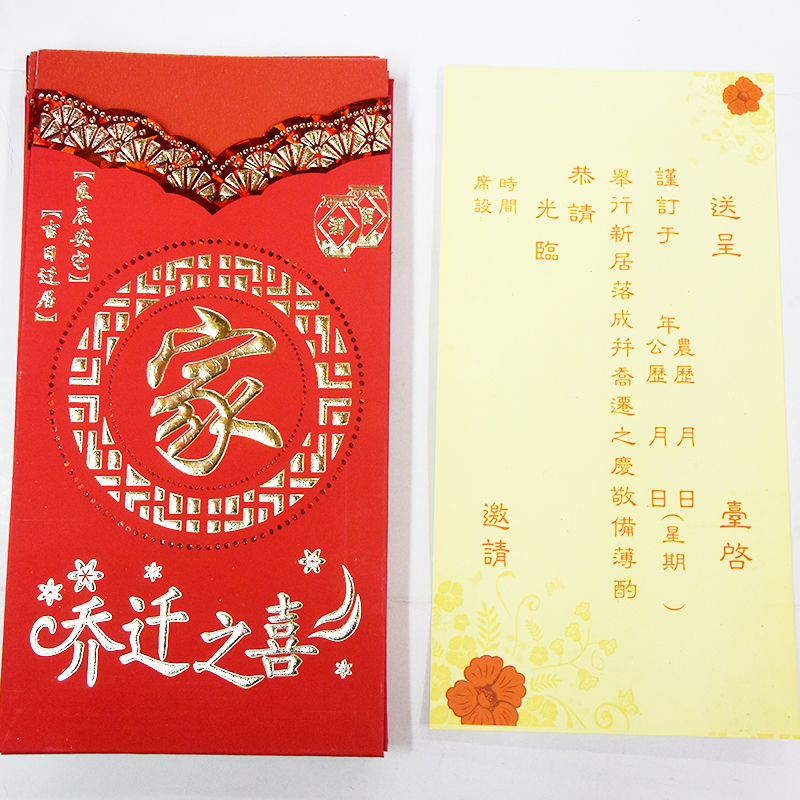 【良辰安宅】
【吉日迁居】
家
乔迁之喜
送呈 臺啓
謹訂于 年 農歷 月 日
公歷 月 日 (星期 )
舉行新居落成幷喬遷之慶敬備薄酌
恭請
光臨 邀請
時間:
席設: